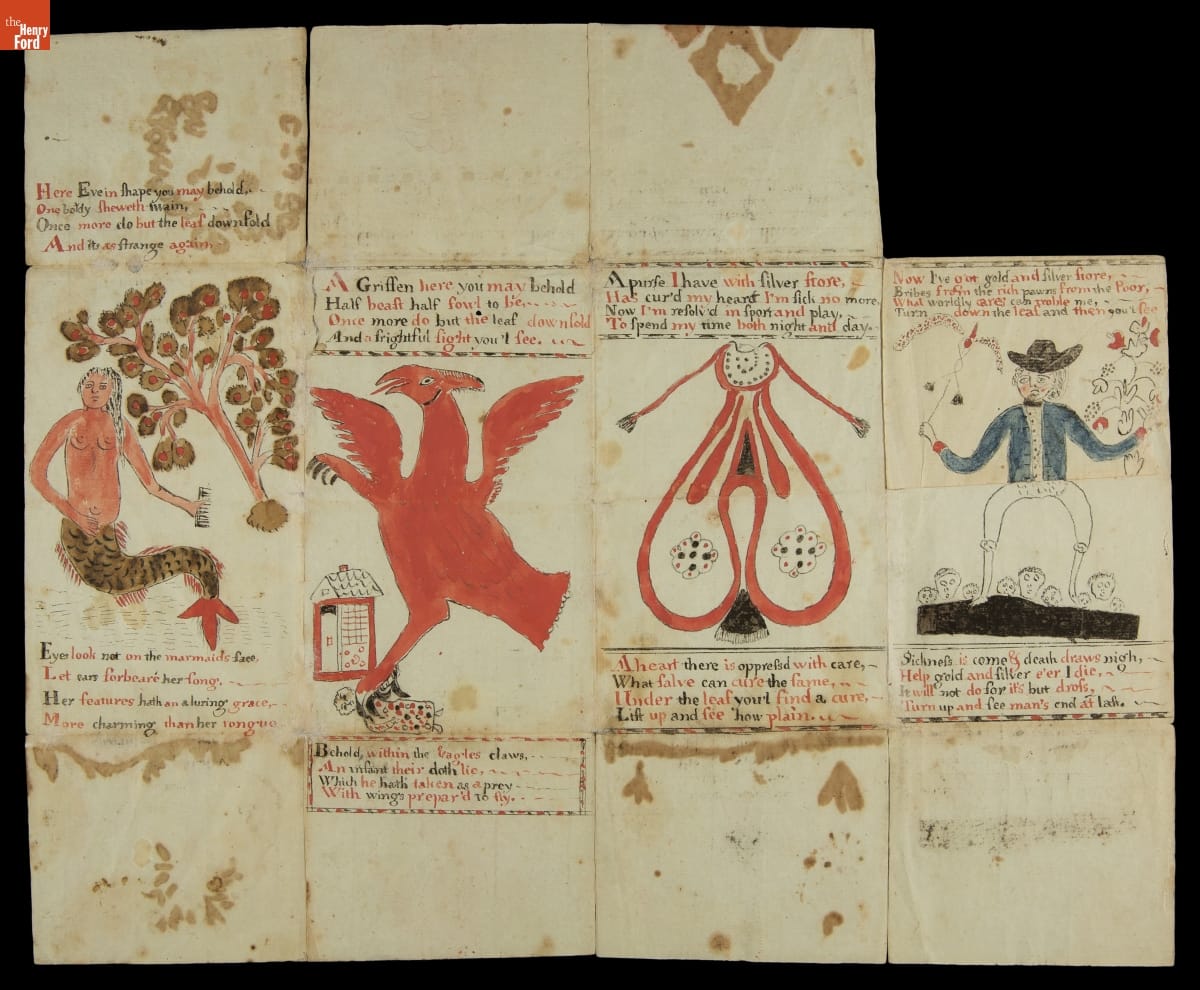 the
Henry
Ford
Here Eve in shape you may behold,
One body sheweth twain,
Once more do but the leaf downfold
And its as strange again
Eyes look not on the marmaids face,
Let ears forbeare her song,
Her features hath an aluring grace,
More charming than her tongue
A Griffen here you may behold
Half beast half fowl to be,
Once more do but the leaf downfold
And a frightful sight you'l see.
Behold, within the Eagles claws,
An infant their doth lie,
Which he hath taken as a prey
With wings prepar'd to fly.
A purse I have with silver store,
Has cur'd my heart I'm sick no more,
Now I'm resolv'd in sport and play,
To spend my time both night and day.
A heart there is oppressd with care,
What salve can cure the same,
Under the leaf you'l find a cure,
Lift up and see how plain.
Now I've got gold and silver store,
Bribes from the rich pawns from the Poor,
What worldly cares can troble me,
Turn down the leaf and then you'l see
Sickness is come & death draws nigh,
Help gold and silver e'er I die,
It will not do for it's but dross,
Turn up and see man's end att last.